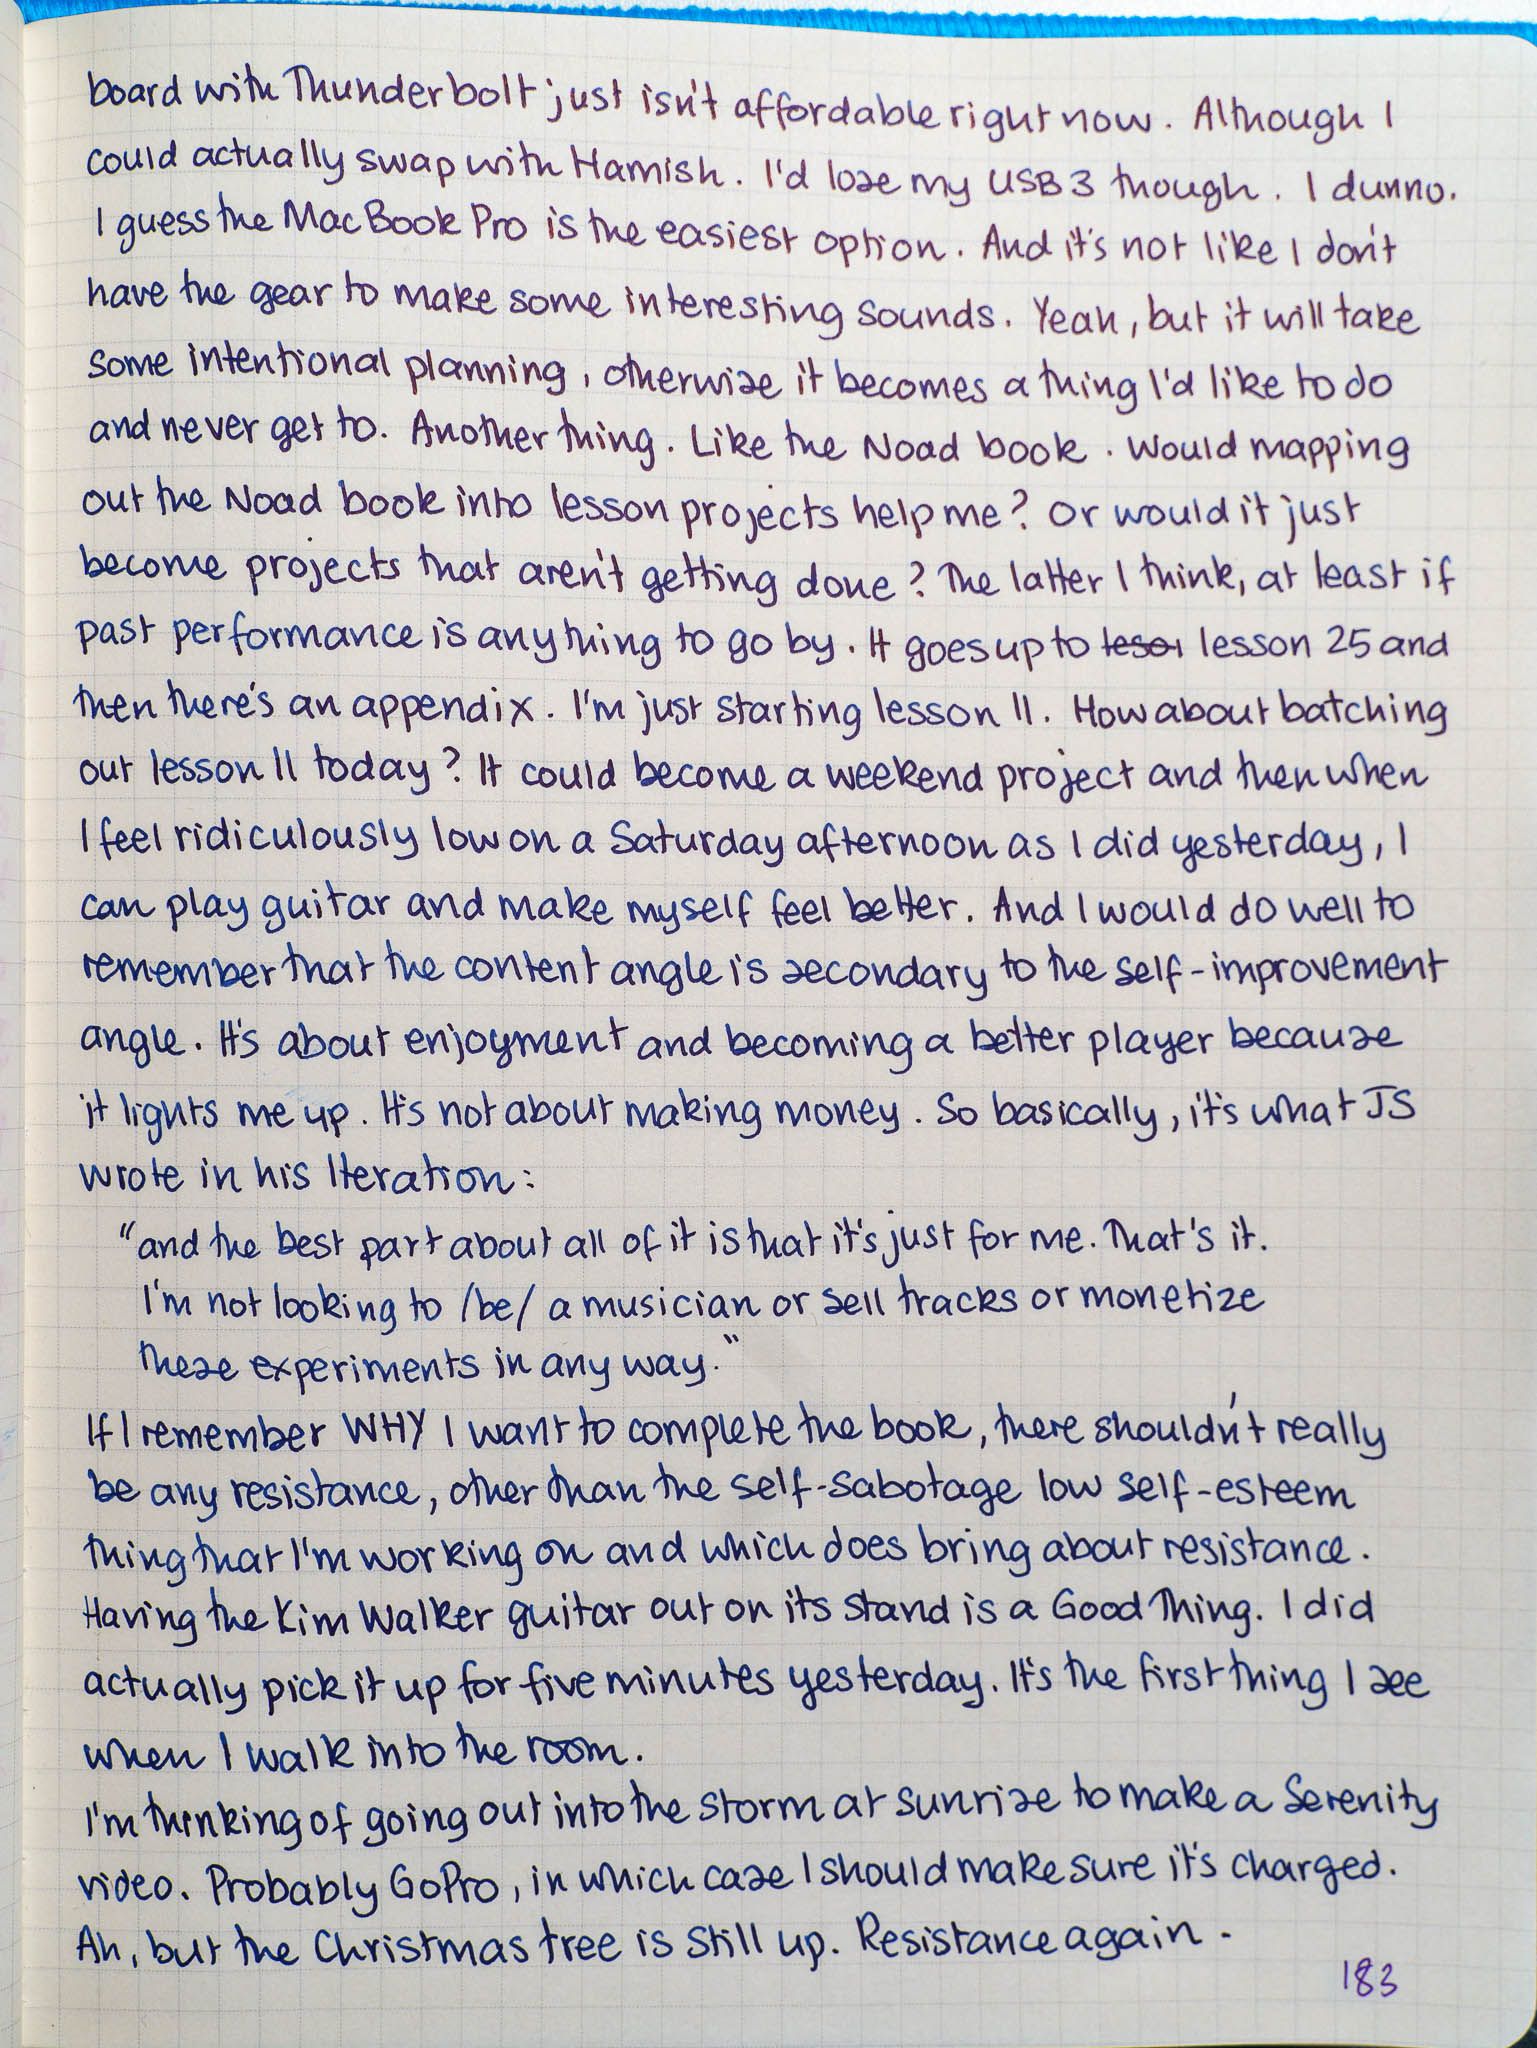 board with Thunderbolt just isn't affordable right now. Although I
could actually swap with Hamish. I'd lose my USB3 though. I dunno.
I guess the MacBook Pro is the easiest option. And it's not like I don't
have the gear to make some interesting sounds. Yeah, but it will take
some intentional planning, otherwise it becomes a thing I'd like to do
and never get to. Another thing. Like the Noad book. Would mapping
out the Noad book into lesson projects help me? Or would it just
become projects that aren't getting done? The latter I think, at least if
past performance is anything to go by. It goes up to lesson 25 and
then there's an appendix. I'm just starting lesson 11. How about batching
out lesson 11 today? It could become a weekend project and then when
I feel ridiculously low on a Saturday afternoon as I did yesterday, I
can play guitar and make myself feel better. And I would do well to
remember that the content angle is secondary to the self-improvement
angle. It's about enjoyment and becoming a better player because
it lights me up. It's not about making money. So basically, it's what JS
wrote in his Iteration:
"and the best part about all of it is that it's just for me. That's it.
I'm not looking to /be/ a musician or sell tracks or monetize
these experiments in any way."
If I remember WHY I want to complete the book, there shouldn't really
be any resistance, other than the self-sabotage low self-esteem
thing that I'm working on and which does bring about resistance.
Having the Kim Walker guitar out on its stand is a Good Thing. I did
actually pick it up for five minutes yesterday. It's the first thing I see
when I walk into the room.
I'm thinking of going out into the storm at sunrise to make a Serenity
video. Probably GoPro, in which case I should make sure it's charged.
Ah, but the Christmas tree is still up. Resistance again.
183